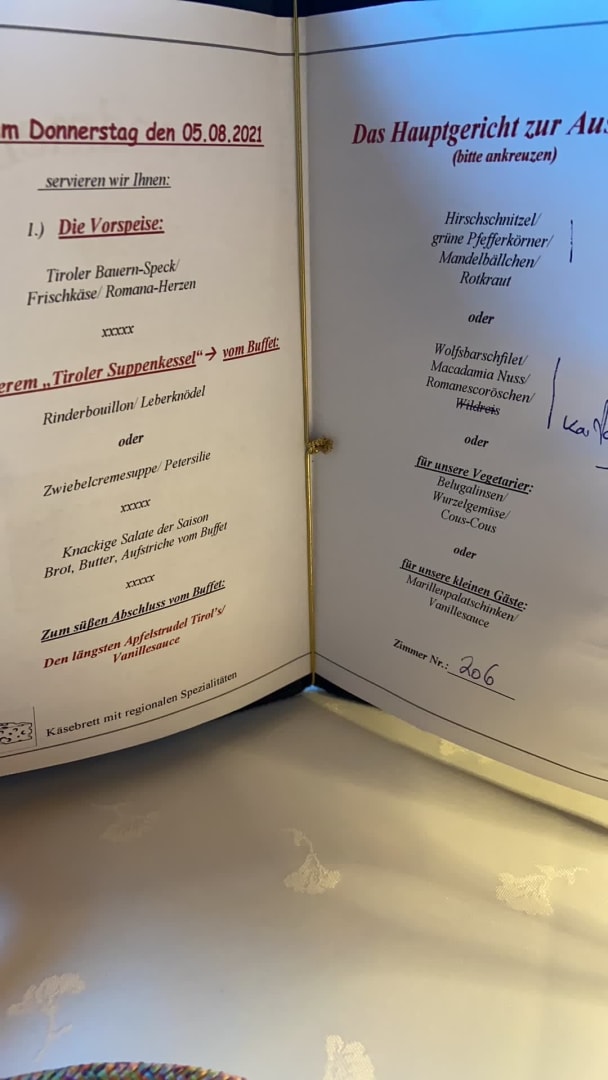 m Donnerstag den 05.08.2021
servieren wir Ihnen:
1.) Die Vorspeise:
Tiroler Bauern-Speck/
Frischkäse/ Romana-Herzen
xxxxx
erem „Tiroler Suppenkessel“→ vom Buffet:
Rinderbouillon/ Leberknödel
oder
Zwiebelcremesuppe/ Petersilie
xxxxx
Knackige Salate der Saison
Brot, Butter, Aufstriche vom Buffet
xxxxx
Zum süßen Abschluss vom Buffet:
Den längsten Apfelstrudel Tirol's/
Vanillesauce
Käsebrett mit regionalen Spezialitäten
Das Hauptgericht zur Aus
(bitte ankreuzen)
Hirschschnitzel/
grüne Pfefferkörner/
Mandelbällchen/
Rotkraut
oder
Wolfsbarschfilet/
Macadamia Nuss/
Romanescoröschen/
Wildreis
oder
für unsere Vegetarier:
Belugalinsen/
Wurzelgemüse/
Cous-Cous
oder
für unsere kleinen Gäste:
Marillenpalatschinken/
Vanillesauce
Zimmer Nr.: 206